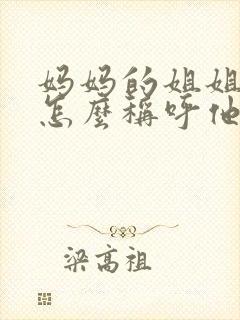 妈妈的姐姐
怎麼稱呼他
梁高祖